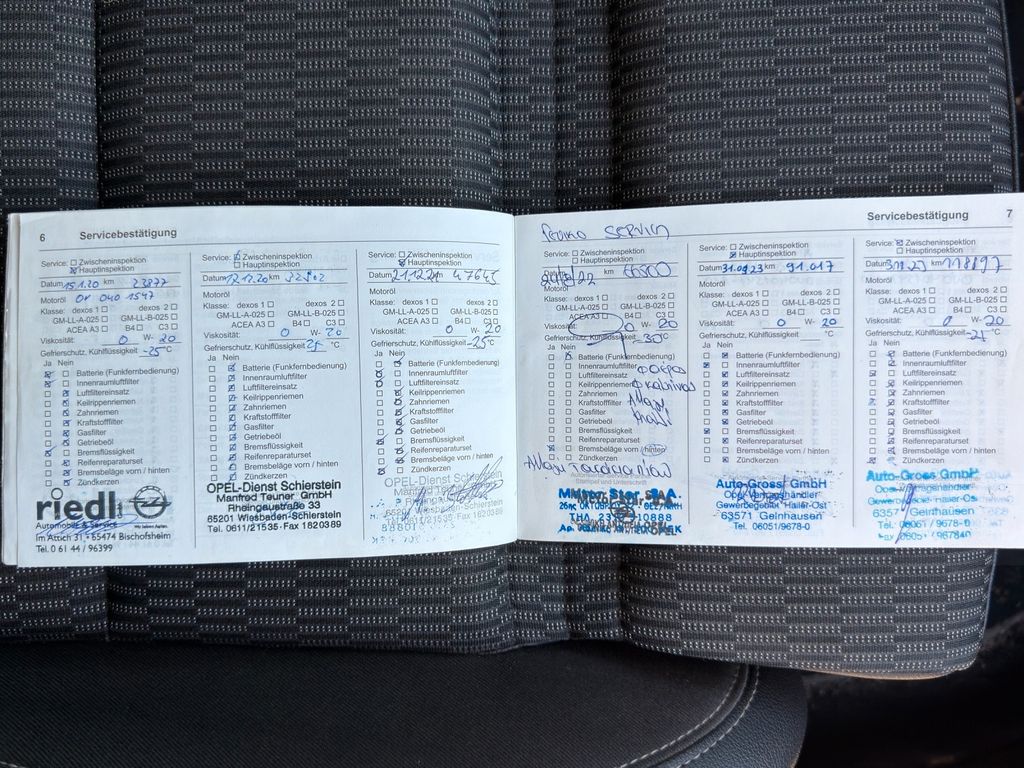 6 Servicebestätigung
Service: Zwischeninspektion
Hauptinspektion
Datum 15.1.20 km 23877
Motoröl OV 040 1547
Klasse: dexos 1 dexos 2
GM-LL-A-025 GM-LL-B-025
ACEA A3 B4 C3
Viskosität: 0 W- 20
Gefrierschutz, Kühlflüssigkeit -25 °C
Ja Nein
Batterie (Funkfernbedienung)
Innenraumluftfilter
Luftfiltereinsatz
Keilrippenriemen
Zahnriemen
Kraftstofffilter
Gasfilter
Getriebeöl
Bremsflüssigkeit
Reifenreparaturset
Bremsbeläge vorn / hinten
Zündkerzen
riedl
Automobile & Service
Im Attich 31 • 65474 Bischofsheim
Tel. 0 61 44 / 96399
Service: Zwischeninspektion
Hauptinspektion
Datum 12.12.20 km
Motoröl
Klasse: dexos 1 dexos 2
GM-LL-A-025 GM-LL-B-025
ACEA A3 B4 C3
Viskosität: 0 W- 20
Gefrierschutz, Kühlflüssigkeit 25 °C
Ja Nein
Batterie (Funkfernbedienung)
Innenraumluftfilter
Luftfiltereinsatz
Keilrippenriemen
Zahnriemen
Kraftstofffilter
Gasfilter
Getriebeöl
Bremsflüssigkeit
Reifenreparaturset
Bremsbeläge vorn / hinten
Zündkerzen
OPEL-Dienst Schierstein
Manfred Teuner GmbH
Rheingaustraße 33
65201 Wiesbaden-Schierstein
Tel. 0611/21535·Fax 1820389
Service: Zwischeninspektion
Hauptinspektion
Datum 21.12.21 47645
Motoröl
Klasse: dexos 1 dexos 2
GM-LL-A-025 GM-LL-B-025
ACEA A3 B4 C3
Viskosität: 0 W- 20
Gefrierschutz, Kühlflüssigkeit -25 °C
Ja Nein
Batterie (Funkfernbedienung)
Innenraumluftfilter
Luftfiltereinsatz
Keilrippenriemen
Zahnriemen
Kraftstofffilter
Gasfilter
Getriebeöl
Bremsflüssigkeit
Reifenreparaturset
Bremsbeläge vorn / hinten
Zündkerzen
OPEL-Dienst Schierstein
Servicebestätigung 7
SERVICE
Service: Zwischeninspektion
Hauptinspektion
km 66300
Motoröl
Klasse: dexos 1 dexos 2
GM-LL-A-025 GM-LL-B-025
ACEA A3 B4 C3
Viskosität: 0 W- 20
Gefrierschutz, Kühlflüssigkeit 30°C
Ja Nein
Batterie (Funkfernbedienung)
Innenraumluftfilter
Luftfiltereinsatz
Keilrippenriemen
Zahnriemen
Kraftstofffilter
Gasfilter
Getriebeöl
Bremsflüssigkeit
Reifenreparaturset
Bremsbeläge hinten
Stempel und Unterschrift
Service: Zwischeninspektion
Hauptinspektion
Datum 31.08.23 km 91.017
Motoröl
Klasse: dexos 1 dexos 2
GM-LL-A-025 GM-LL-B-025
ACEA A3 B4 C3
Viskosität: 0 W- 20
Gefrierschutz, Kühlflüssigkeit °C
Ja Nein
Batterie (Funkfernbedienung)
Innenraumluftfilter
Luftfiltereinsatz
Keilrippenriemen
Zahnriemen
Kraftstofffilter
Gasfilter
Getriebeöl
Bremsflüssigkeit
Reifenreparaturset
Bremsbeläge vorn / hinten
Zündkerzen
Auto-Gross GmbH
Opel-Vertragshändler
Gewerbegebiet Hailer-Ost
63571 Gelnhausen
Tel. 06051/9678-0
Service: Zwischeninspektion
Hauptinspektion
Datum km 118197
Motoröl
Klasse: dexos 1 dexos 2
GM-LL-A-025 GM-LL-B-025
ACEA A3 B4 C3
Viskosität: 0 W- 20
Gefrierschutz, Kühlflüssigkeit °C
Ja Nein
Batterie (Funkfernbedienung)
Innenraumluftfilter
Luftfiltereinsatz
Keilrippenriemen
Zahnriemen
Kraftstofffilter
Gasfilter
Getriebeöl
Bremsflüssigkeit
Reifenreparaturset
Bremsbeläge vorn / hinten
Zündkerzen
Auto-Gross GmbH
Gelnhausen